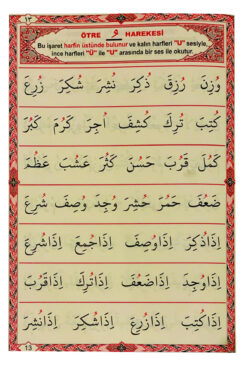 ١٣
ÖTRE ـُ HAREKESİ
Bu işaret harfin üstünde bulunur ve kalın harfleri "U" sesiyle,
ince harfleri "Ü" ile "U" arasında bir ses ile okutur.
زُرِعَ شُكِرَ نُشِرَ ذُكِرَ رُزِقَ وُزِنَ
كَبُرَ كَرُمَ اُجِرَ كُشِفَ تُرِكَ كُتِبَ
عَظُمَ عَشُبَ كَثُرَ حَسُنَ قَرُبَ كَمُلَ
شُرِعَ وُصِفَ وُجِدَ حُشِرَ حَمُرَ ضَعُفَ
اِذَاشُرِعَ اِذَاجُمِعَ اِذَاوُصِفَ اِذَاذُكِرَ
اِذَاقَرُبَ اِذَاتُرِكَ اِذَاضَعُفَ اِذَاوُجِدَ
اِذَانُشِرَ اِذَاشُكِرَ اِذَازُرِعَ اِذَاكُتِبَ
13